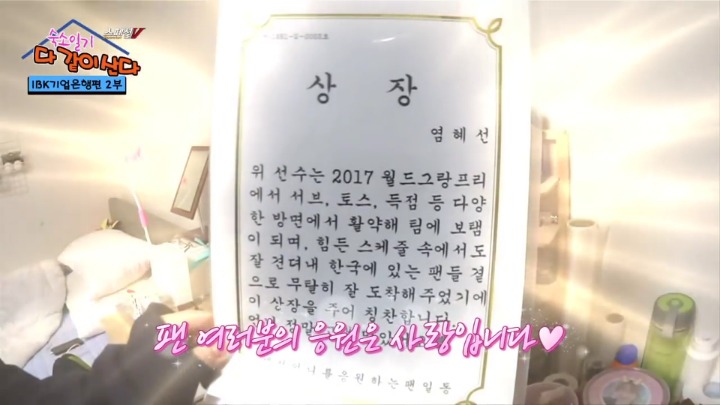 숙소일기
스페셜V
다 같이 산다
IBK기업은행편 2부
상 장
염 혜 선
위 선수는 2017 월드그랑프리
에서 서브, 토스, 득점 등 다양
한 방면에서 활약해 팀에 보탬
이 되며, 힘든 스케줄 속에서도
잘 견뎌내 한국에 있는 팬들 곁
으로 무탈히 잘 도착해주었기에
이 상장을 주어 칭찬합니다
팬 여러분의 응원은 사랑입니다♥
를 응원하는 팬 일동